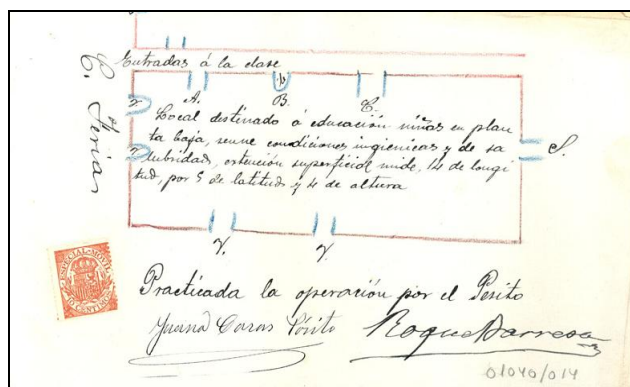 Entradas á la clase
C. Ferias
A. B. C.
Local destinado á educación niñas en plan
ta baja, reune condiciones ingienicas y de sa
lubridad, extención superficial mide, 14 de longi
tud, por 5 de latitud y 4 de altura
S.
V. V.
ESPECIAL MOVIL
10 CENTIMOS
Practicada la operación por el Perito
Juana Roque Barresa
01040/014